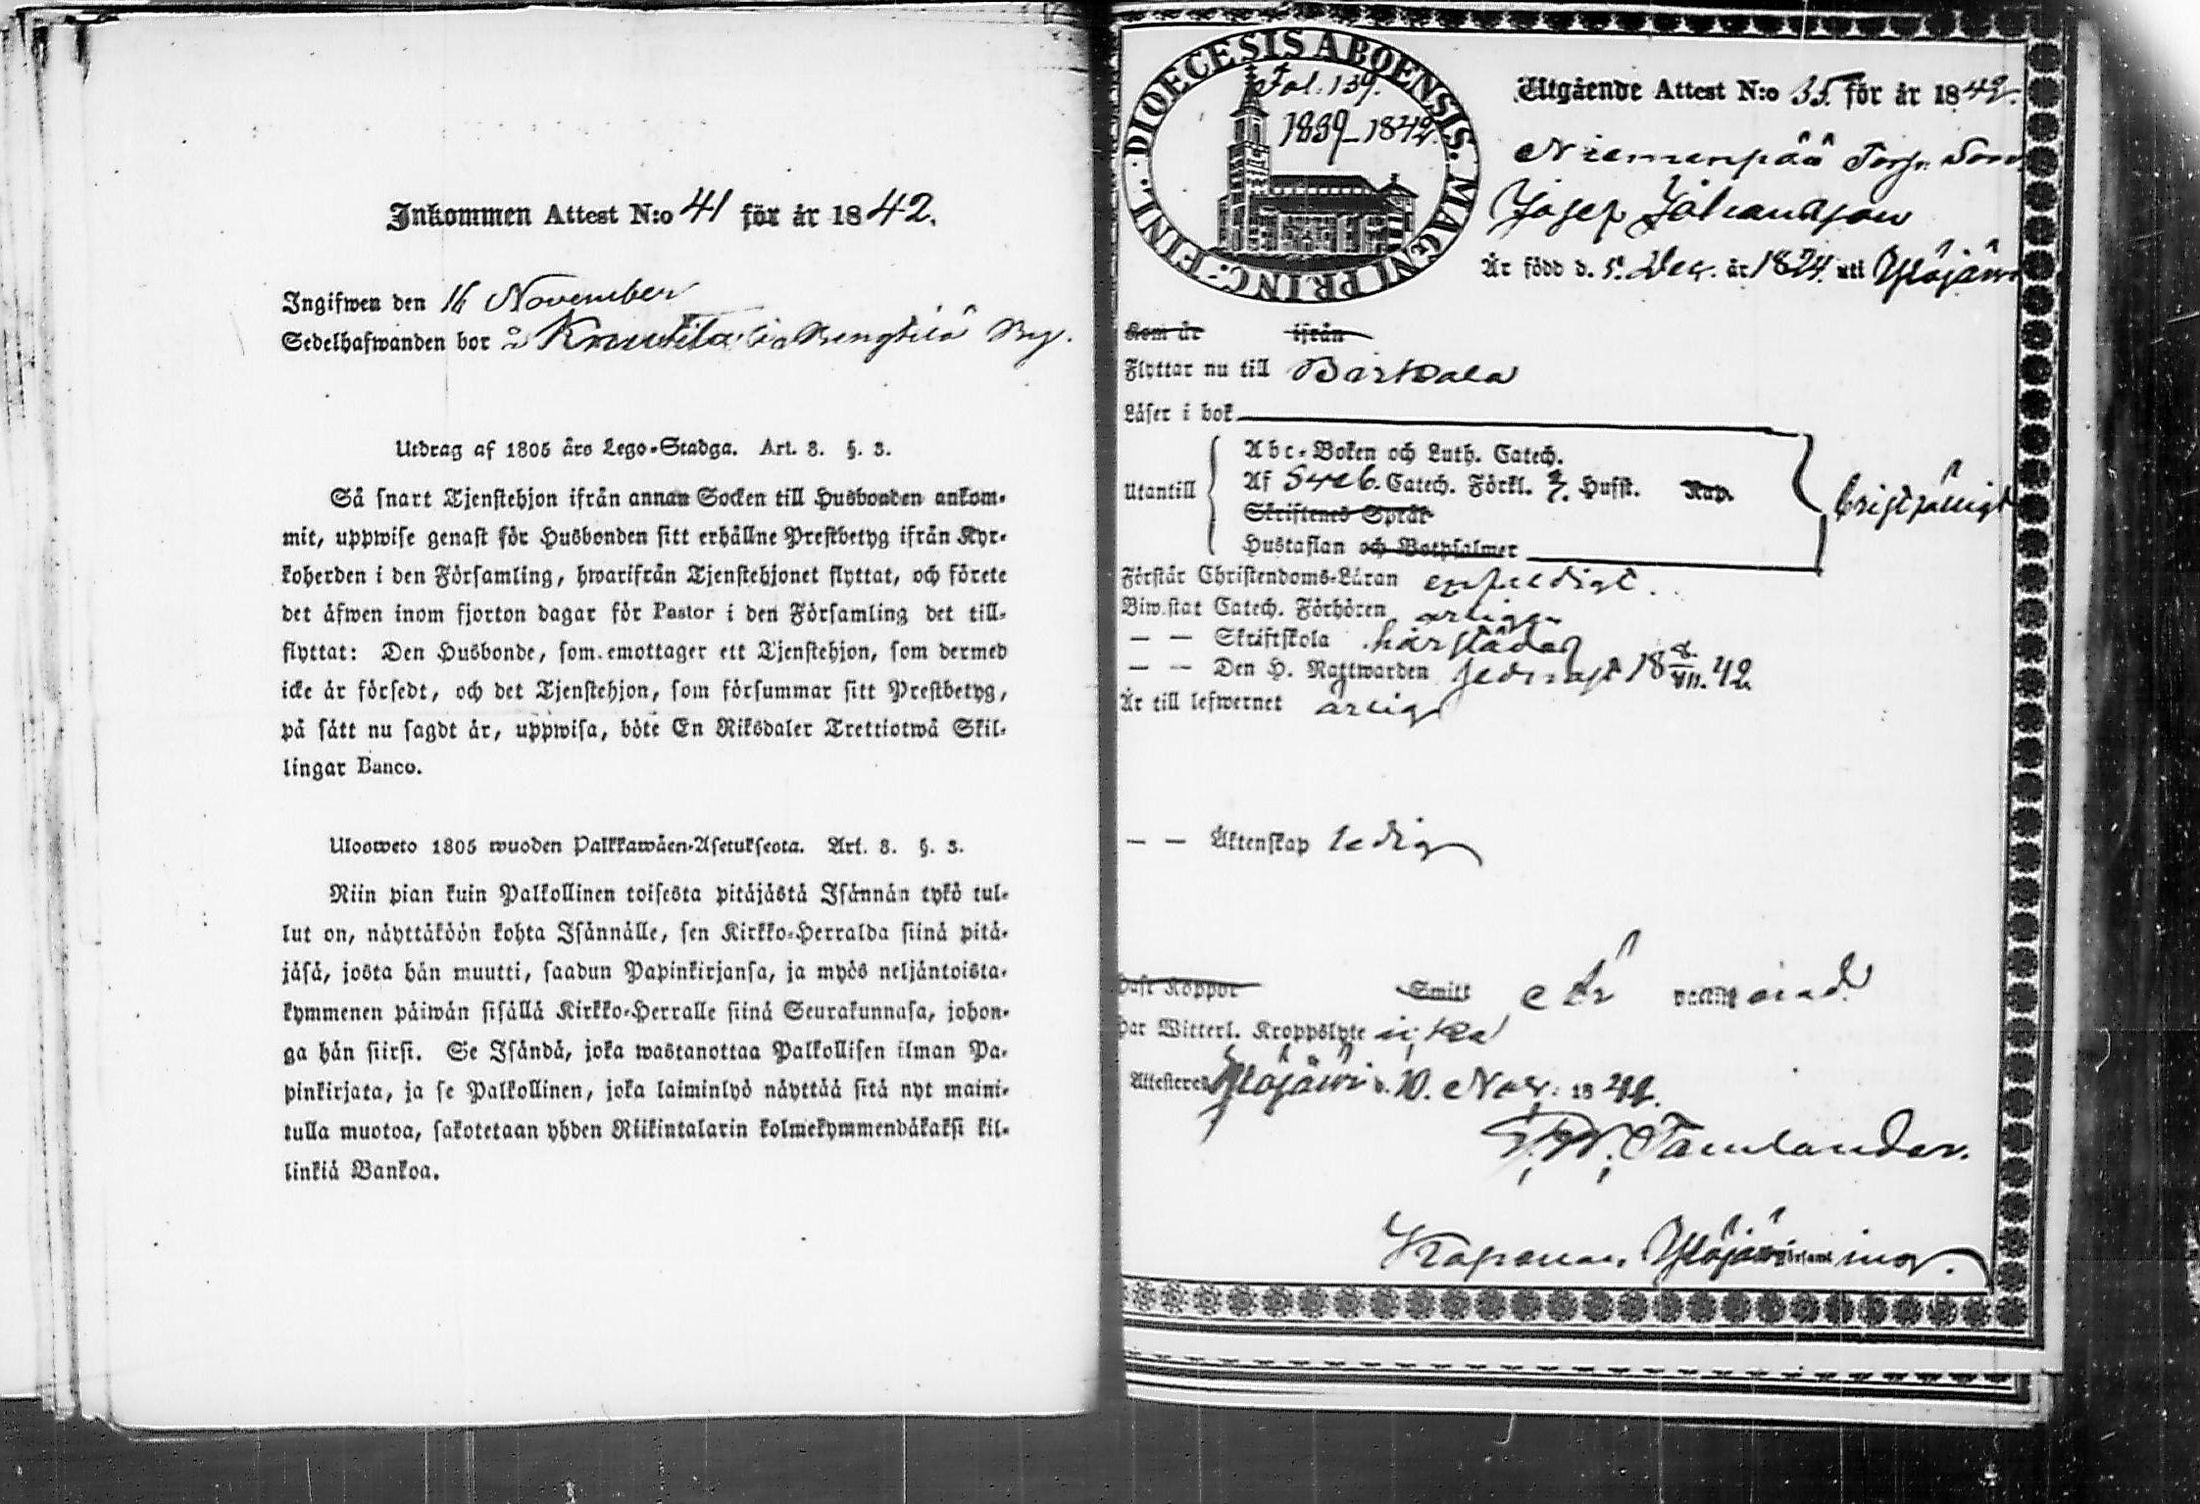 Inkommen Attest N:o 41 för år 1842.
Ingifwen den 16 November
Sedelhafwanden bor å Knuutila i Bengtilä By.
Utdrag af 1805 års Lego-Stadga. Art. 8. §. 3.
Så snart Tjenstehjon ifrån annan Socken till Husbonden ankom-
mit, uppwise genast för Husbonden sitt erhållne Prestbetyg ifrån Kyr-
koherden i den Församling, hwarifrån Tjenstehjonet flyttat, och förete
det äfwen inom fjorton dagar för Pastor i den Församling det till-
flyttat: Den Husbonde, som emottager ett Tjenstehjon, som dermed
icke är försedt, och det Tjenstehjon, som försummar sitt Prestbetyg,
på sätt nu sagdt är, uppwisa, böte En Riksdaler Trettiotwå Skil-
lingar Banco.
Uloswето 1805 wuoden Palkkawäen-Asetuksesta. Art. 8. §. 3.
Niin pian kuin Palkollinen toisesta pitäjästä Isännän tykö tul-
lut on, näyttäköön kohta Isännälle, sen Kirkko-Herralda siinä pitä-
jäsä, josta hän muutti, saadun Papinkirjansa, ja myös neljäntoista-
kymmenen päiwän sisällä Kirkko-Herralle siinä Seurakunnasa, johon-
ga hän siirsi. Se Isändä, joka wastanottaa Palkollisen ilman Pa-
pinkirjata, ja se Palkollinen, joka laiminlyö näyttää sitä nyt maini-
tulla muotoa, sakotetaan yhden Riikintalarin kolmekymmendäkaksi kil-
linkiä Bankoa.
DIOECESIS ABOENSIS. MAGNI PRINC: FINL.
Fol. 139.
1839-1842.
Utgående Attest N:o 35. för år 1842.
Niemenpää Torp. Son
Josep Johansson
Är född d. 5. Dec. år 1824 uti Ylöjärvi
Som är ifrån
Flyttar nu till Birkkala
Läser i bok
Utantill
Abc-Boken och Luth. Catech.
Af Sweb. Catech. Förkl. Hufst. Kap.
Skriftenes Språk
Hustaflan och Botpsalmer
bristfälligt
Förstår Christendoms-Läran enfaldigt.
Biw.stat Catech. Förhören årligen
— — Skriftskola härstädes
— — Den H. Nattwarden sednast 18 8/VII. 42.
Är till lefwernet ärlig
— — Äktenskap ledig
Haft Koppor Smitt är vaccinerad
Har Witterl. Kroppslyte icke
Attesteres Ylöjärvi d. 10. Nov. 1842.
Tamlander.
Kapellan, Ylöjärvi Församling.